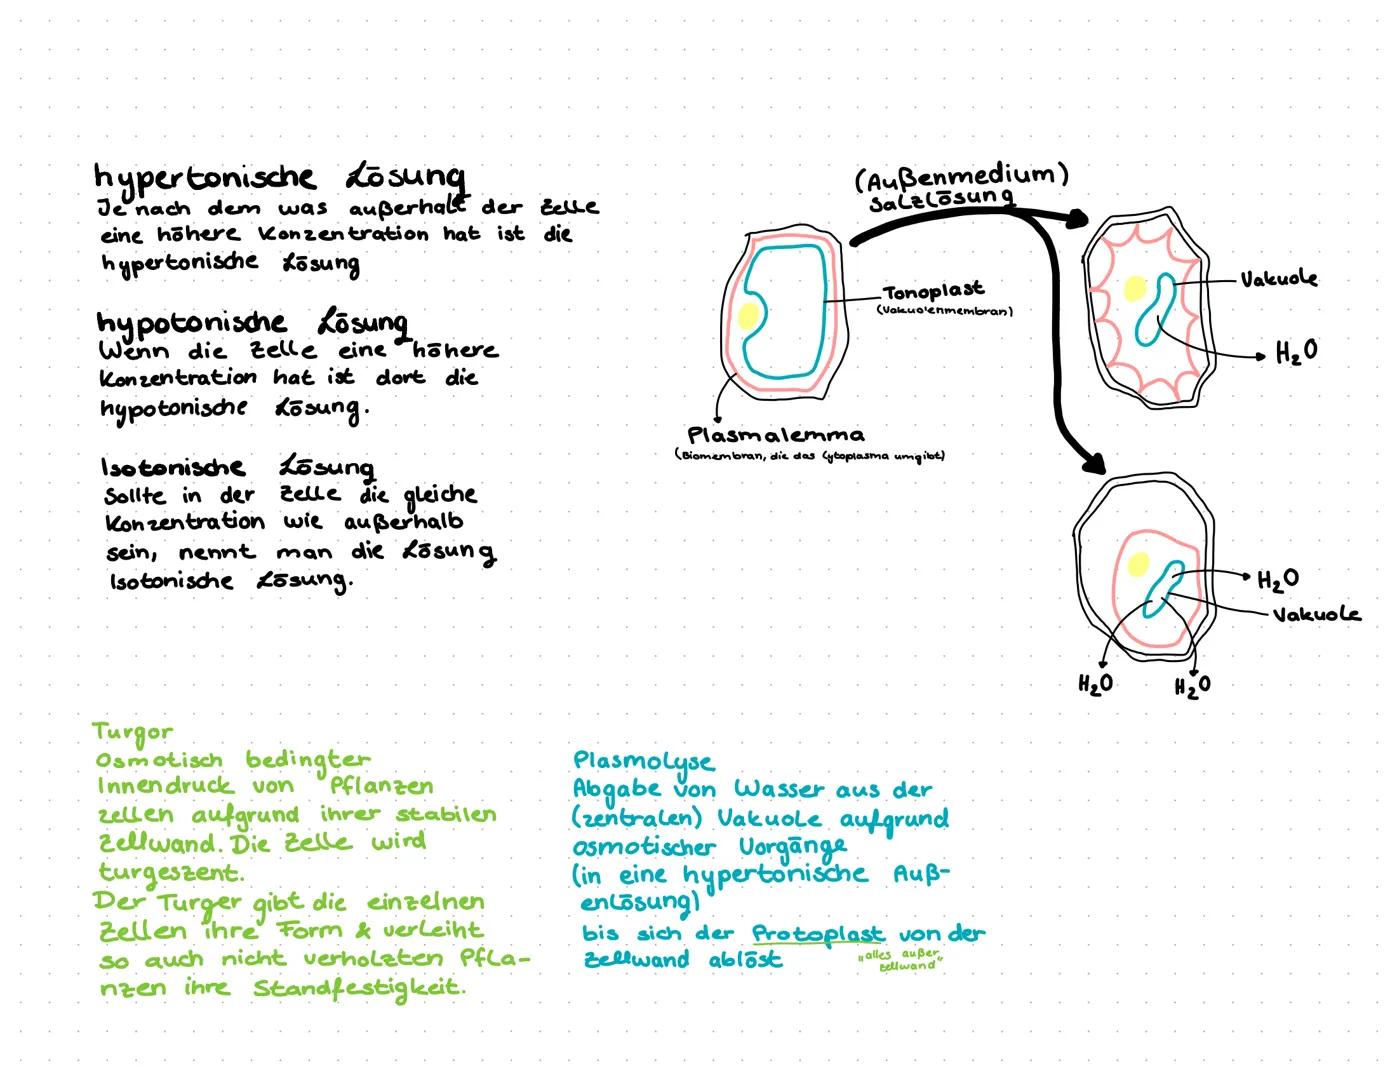 hypertonische Lösung
Je nach dem was außerhalt der Zelle
eine höhere Konzentration hat ist die
hypertonische Lösung
hypotonische Lösung
Wenn die Zelle eine höhere
Konzentration hat ist dort die
hypotonische Lösung.
Isotonische Lösung
Sollte in der Zelle die gleiche
Konzentration wie außerhalb
sein, nennt man die Lösung
Isotonische Lösung.
(Außenmedium)
Salzlösung
Tonoplast
(Vakuolenmembran)
Plasmalemma
(Biomembran, die das Cytoplasma umgibt)
Vakuole
H₂O
H₂O
Vakuole
H₂O
H₂O
Turgor
Osmotisch bedingter
Innendruck von Pflanzen
zellen aufgrund ihrer stabilen
Zellwand. Die Zelle wird
turgeszent.
Der Turger gibt die einzelnen
Zellen ihre Form & verleiht
so auch nicht verholzten Pfla-
nzen ihre Standfestigkeit.
Plasmolyse
Abgabe von Wasser aus der
(zentralen) Vakuole aufgrund
osmotischer Vorgänge
(in eine hypertonische Auß-
enlösung)
bis sich der Protoplast von der
Zellwand ablöst
"alles außer
Zellwand"